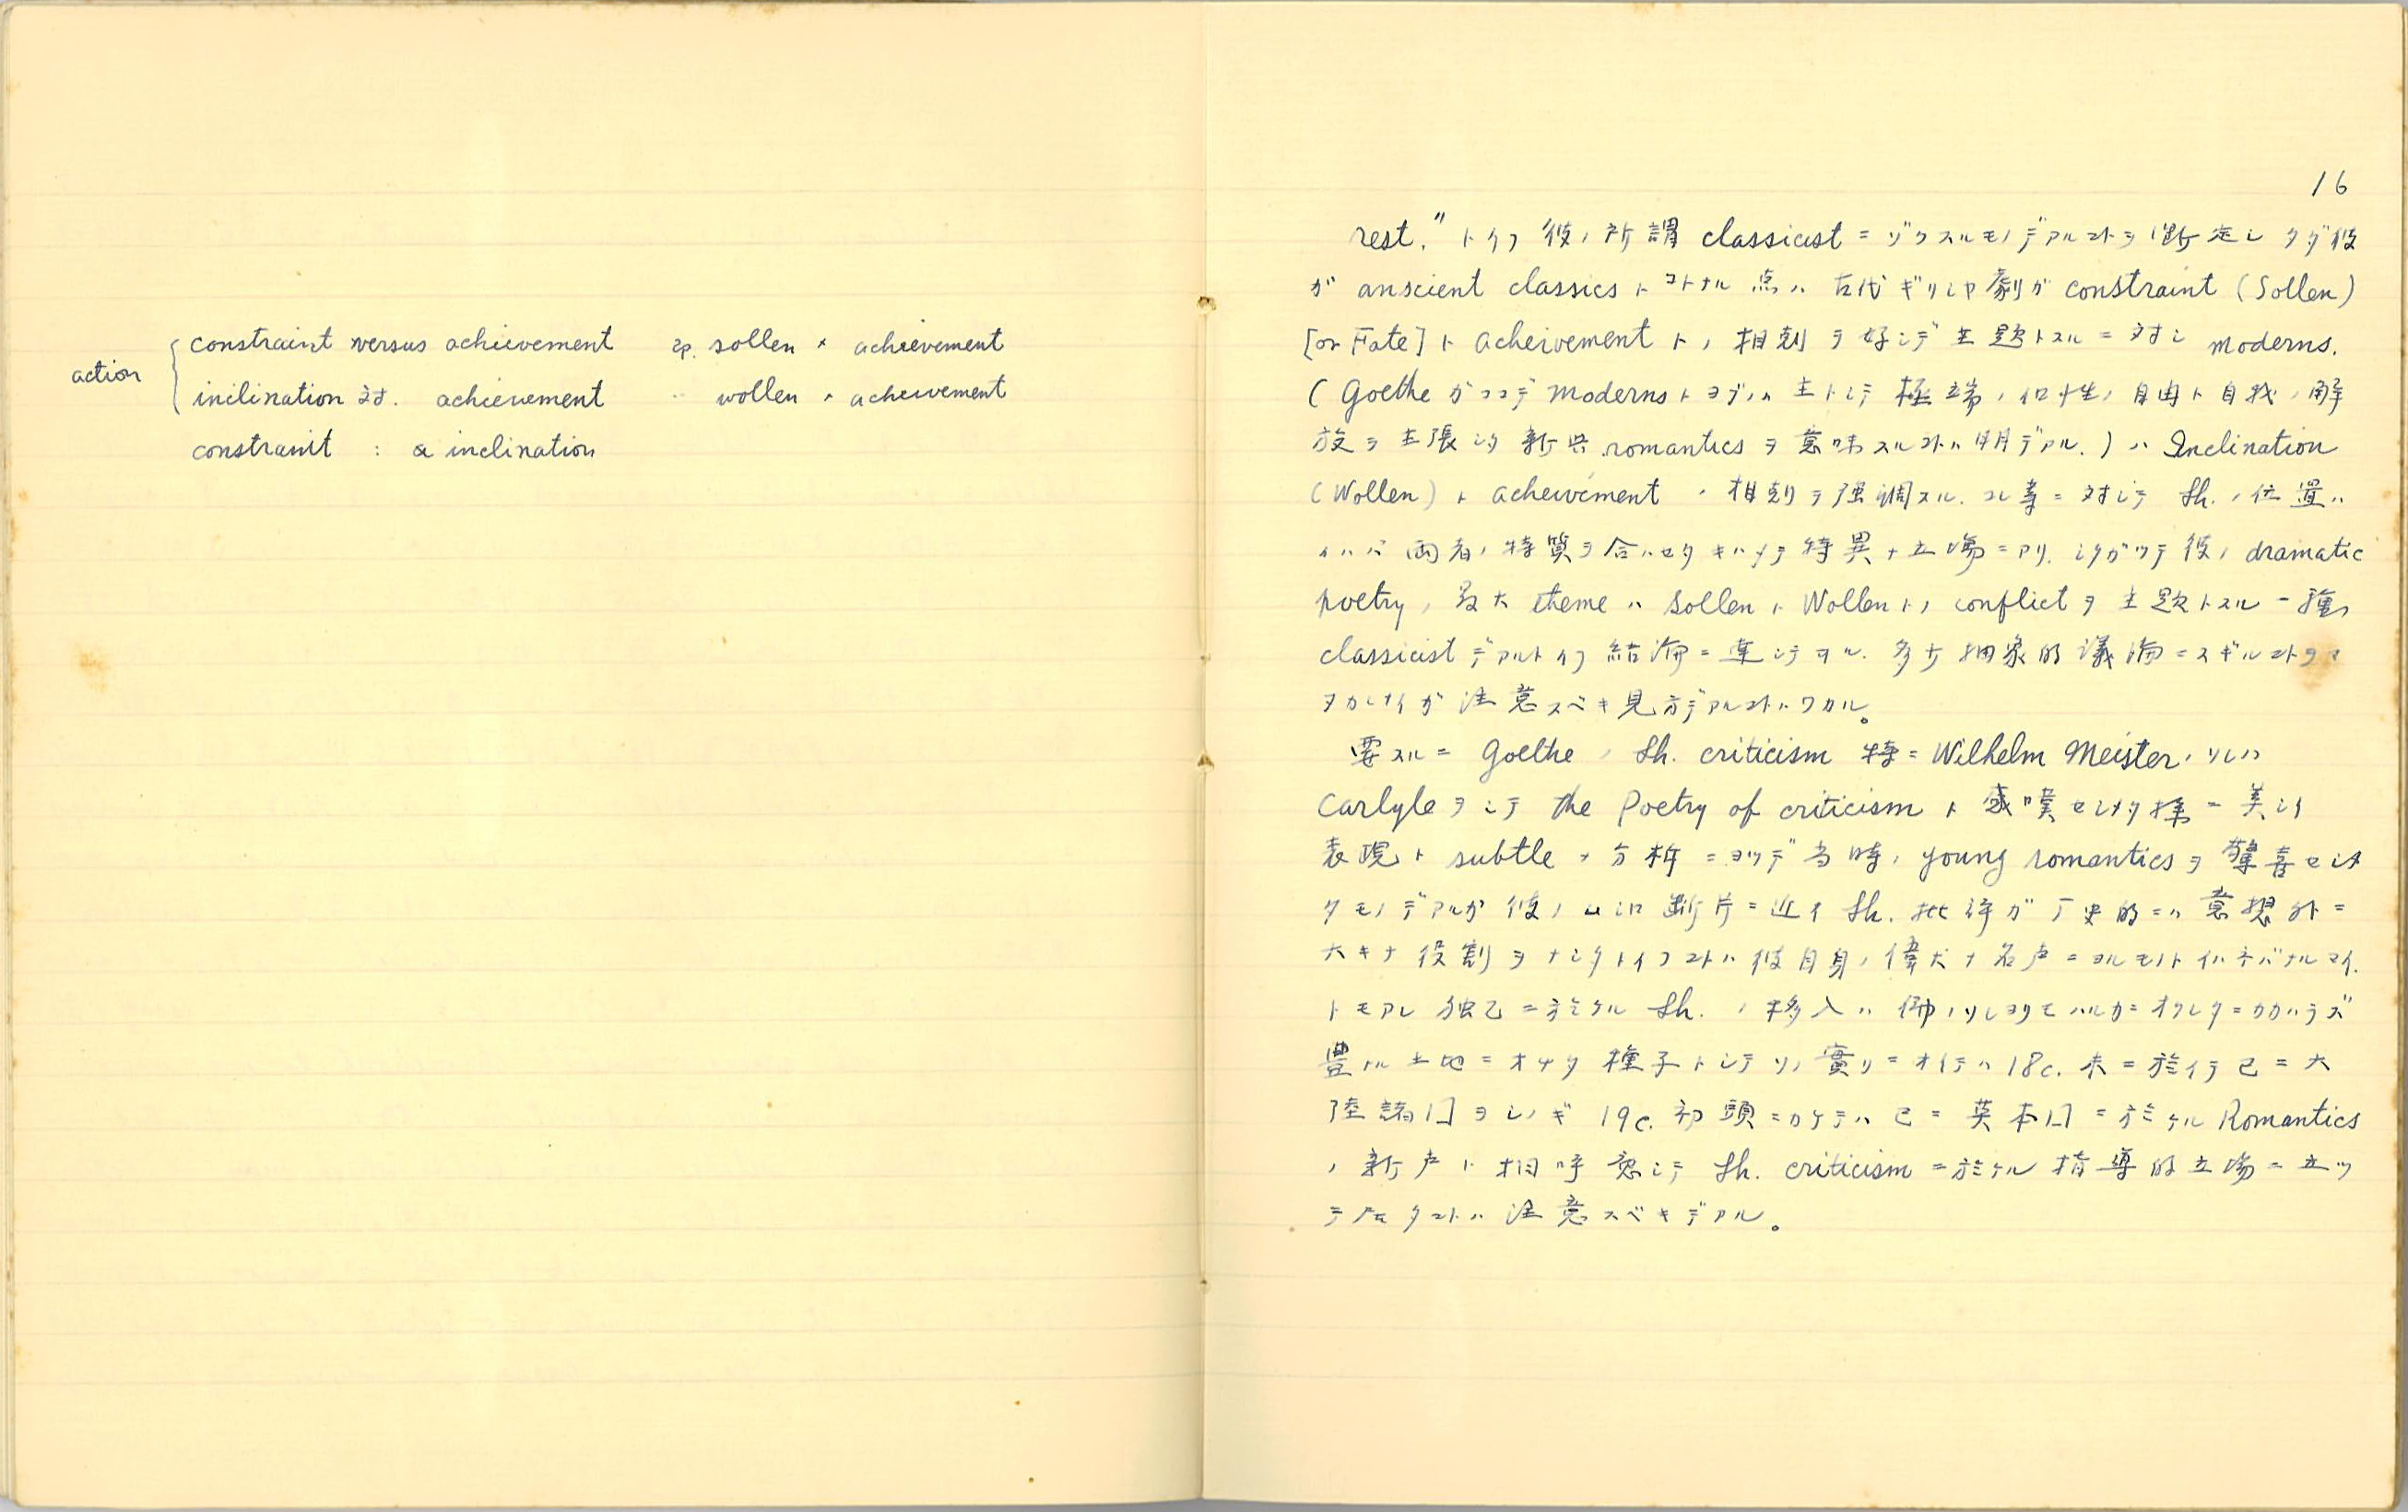 action
constraint versus achievement 即. sollen × achievement
inclination 対. achievement 〃 wollen × acheivement
constraint : a inclination
16
rest." トイフ 彼ノ所謂 classicist ニ ゾクスルモノデアルコトヲ断定シ タダ彼
ガ anscient classics ト コトナル 点ハ 古代ギリシャ劇ガ constraint (Sollen)
[or Fate] ト acheivement トノ 相剋ヲ好ンデ主題トスルニ対シ moderns.
( Goethe ガココデ moderns トヨブノハ 主トシテ 極端ノ個性ノ自由ト自我ノ解
放ヲ主張シタ 新興 romantics ヲ意味スルコトハ明デアル. ) ハ Inclination
(Wollen) ト acheivement ノ 相剋ヲ強調スル. コレ等ニ対シテ Sh. ノ位置ハ
イハバ 両者ノ特質ヲ合ハセタ キハメテ特異ナ立場ニアリ. シタガツテ彼ノ dramatic
poetry ノ最大 theme ハ Sollen ト Wollen トノ conflict ヲ主題トスル一種ノ
classicist デアルトイフ 結論ニ達シテヰル. 多少抽象的議論ニスギルコトヲマ
ヌカレナイガ 注意スベキ見方デアルコトハワカル。
要スルニ Goethe ノ Sh. criticism 特ニ Wilhelm Meister ノソレハ
Carlyle ヲシテ the Poetry of criticism ト感嘆セシメタ様ニ美シイ
表現ト subtle ナ分析ニヨツテ当時ノ young romantics ヲ驚喜セシメ
タモノデアルガ 彼ノムシロ断片ニ近イ Sh. 批評ガ厂史的ニハ意想外ニ
大キナ役割ヲナシタトイフコトハ彼自身ノ偉大ナ名声ニヨルモノトイハネバナルマイ.
トモアレ 独乙ニ於ケル Sh. ノ移入ハ 佛ノソレヨリモハルカニオクレタニカカハラズ
豊ナル土地ニオチタ 種子トシテソノ實リニオイテハ 18c. 末ニ於イテ已ニ大
陸諸囗ヲシノギ 19c. 初頭ニカケテハ已ニ英本囗ニ於ケル Romantics
ノ新声ト相呼応シテ Sh. criticism ニ於ケル指導的立場ニ立ツ
テ居タコトハ 注意スベキデアル。